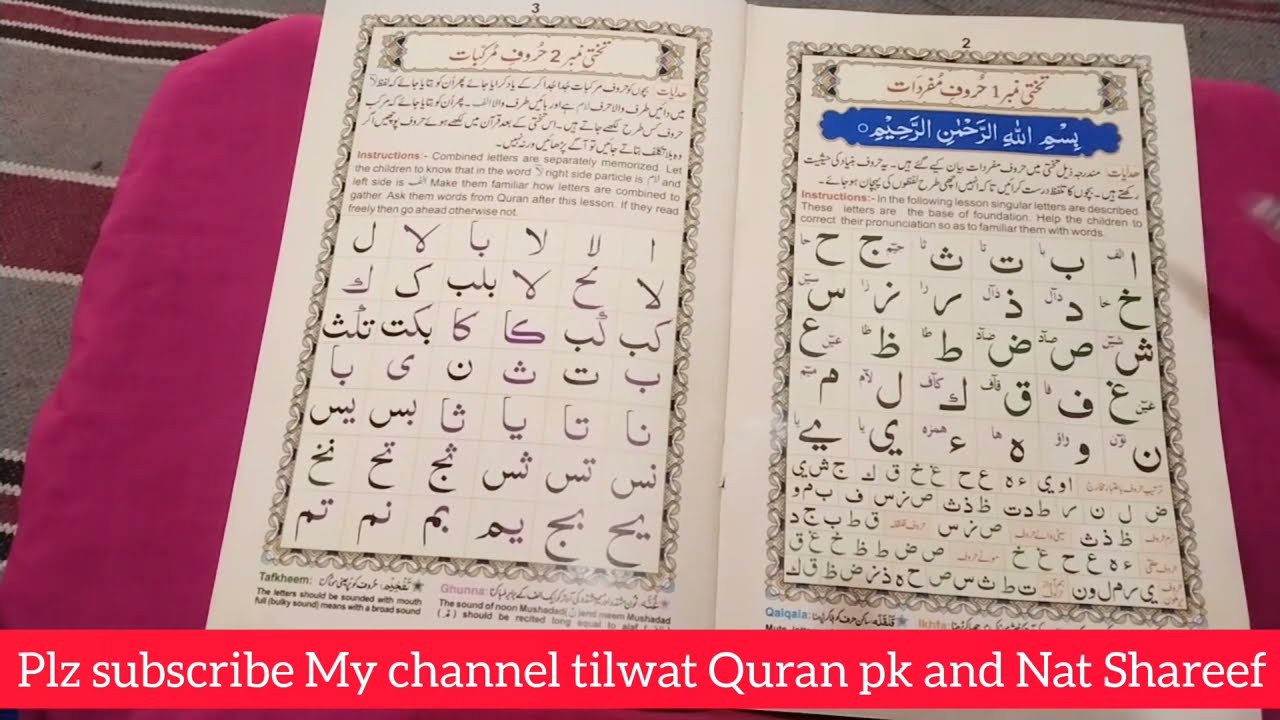 2
تختی نمبر 1 حُروفِ مُفردَات
بِسْمِ اللهِ الرَّحْمٰنِ الرَّحِيْمِ
ھدایات مندرجہ ذیل تختی میں حروف مفردات بیان کیے گئے ہیں۔ یہ حروف بنیاد کی حیثیت
رکھتے ہیں۔ بچوں کا تلفظ درست کرائیں تاکہ انہیں اچھی طرح لفظوں کی پہچان ہو جائے۔
Instructions:- In the following lesson singular letters are described.
These letters are the base of foundation. Help the children to
correct their pronunciation so as to familiar them with words.
ا الف ب با ت تا ث ثا ج جیم ح حا
خ خا د دال ذ ذال ر را ز زا س سین
ش شین ص صاد ض ضاد ط طا ظ ظا ع عین
غ غین ف فا ق قاف ك کاف ل لام م میم
ن نون و واو ه ها ء همزه ي يا ے يا
ترتیب حروف باعتبار مخارج ا و ی ء ه ع ح غ خ ق ك ج ش ی
ض ل ن ر ط د ت ظ ذ ث ص ز س ف ب م و
نرم حروف ظ ذ ث سیٹی والے حروف ص ز س حروف قلقلہ ق ط ب ج د
حروف حلقی ء ه ع ح غ خ موٹے حروف خ ص ض ط ظ غ ق
Qalqala: قَلْقَلَہ: ساکن حرف کو ہلا کر پڑھنا
Ikhfa:
3
تختی نمبر 2 حُروفِ مُرکبّات
ھدایات بچوں کو حروف مرکبات جُدا جُدا کر کے یاد کرایا جائے پھر اُن کو بتایا جائے کہ لفظ لا
میں دائیں طرف والا حرف لام ہے اور بائیں طرف والا الف۔ پھر اُن کو بتایا جائے کہ مرکب
حروف کس طرح لکھے جاتے ہیں۔ اس تختی کے بعد قرآن میں لکھے ہوئے حروف پوچھیں اگر
وہ بلا تکلف بتاتے جائیں تو آگے پڑھائیں ورنہ نہیں۔
Instructions:- Combined letters are separately memorized. Let
the children to know that in the word لا right side particle is لام and
left side is الف. Make them familiar how letters are combined to
gather. Ask them words from Quran after this lesson. If they read
freely then go ahead otherwise not.
ا لا لا با لا ل
لا لح لا بلب ک ك
کب کب کا کا بکت تلث
ب ت ث ن ی با
نا تا یا ثا بس یس
نس تس ثس ثج تح نخ
یح بج یم بم نم تم
Tafkheem: تَفْخِیْم: حروف کو پُر یعنی موٹا کرنا
The letters should be sounded with mouth
full (bulky sound) means with a broad sound
Ghunna:
The sound of noon Mushadad (نّ) and meem Mushadad
(مّ) should be recited long equal to alaf
Plz subscribe My channel tilwat Quran pk and Nat Shareef